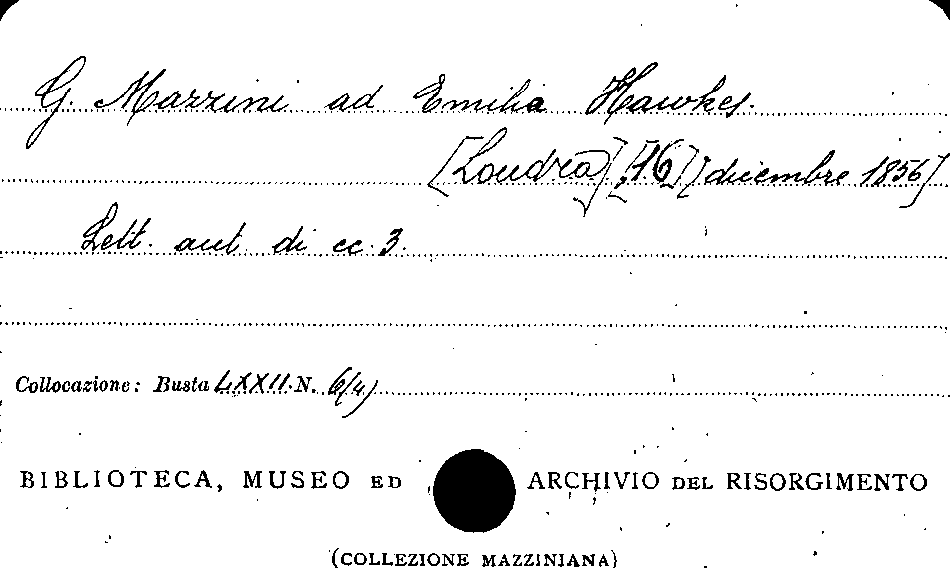 G. Mazzini ad Emilia Hawkes.
[Londra], [16] [dicembre 1856]
Lett. aut. di cc. 3.
Collocazione: Busta LXXII. N. 6(4)
BIBLIOTECA, MUSEO ED ARCHIVIO DEL RISORGIMENTO
(COLLEZIONE MAZZINIANA)